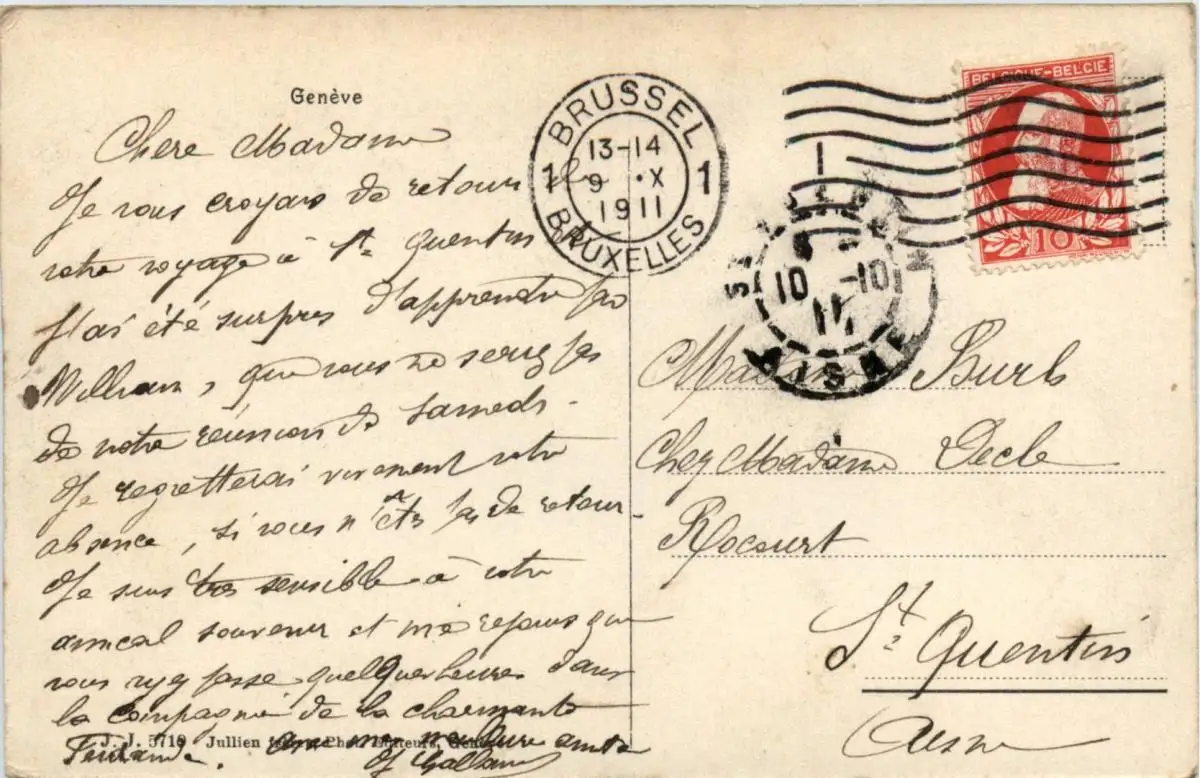 Genève
Chere Madame
Je vous croyais de retour de
votre voyage à St Quentin
J'ai été surpris d'apprendre par
William, que vous ne seriez pas
de notre réunion de samedi.
Je regretterai vivement votre
absence, si vous n'êtes pas de retour.
Je suis très sensible à votre
amical souvenir et me rejouis que
vous ayez passé quelques heures dans
la compagnie de la charmante
J. J. 5719 Jullien Genève
meilleure
BRUSSEL
1 1
13-14
9 X
1911
BRUXELLES
BELGIQUE-BELGIE
10
10 -10
11
AISNE
Madame Burls
Chez Madame Decle
Rocourt
St Quentin
Aisne